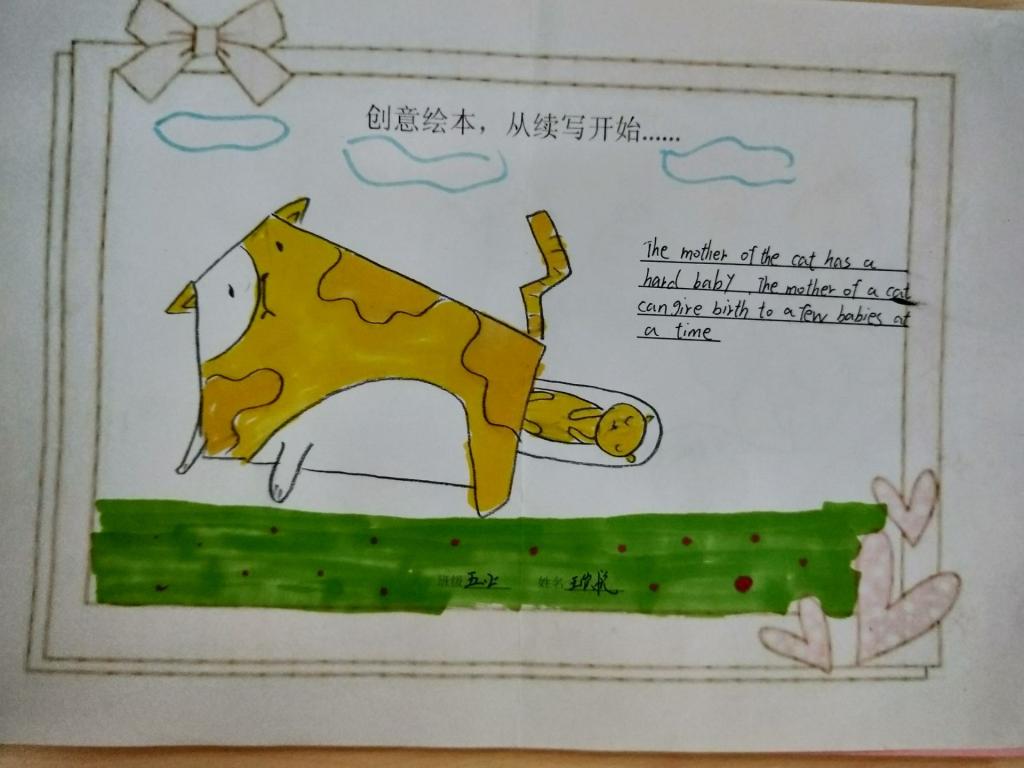 创意绘本，从续写开始......
The mother of the cat has a
hard baby .The mother of a cat
can give birth to a few babies at
a time
班级 姓名